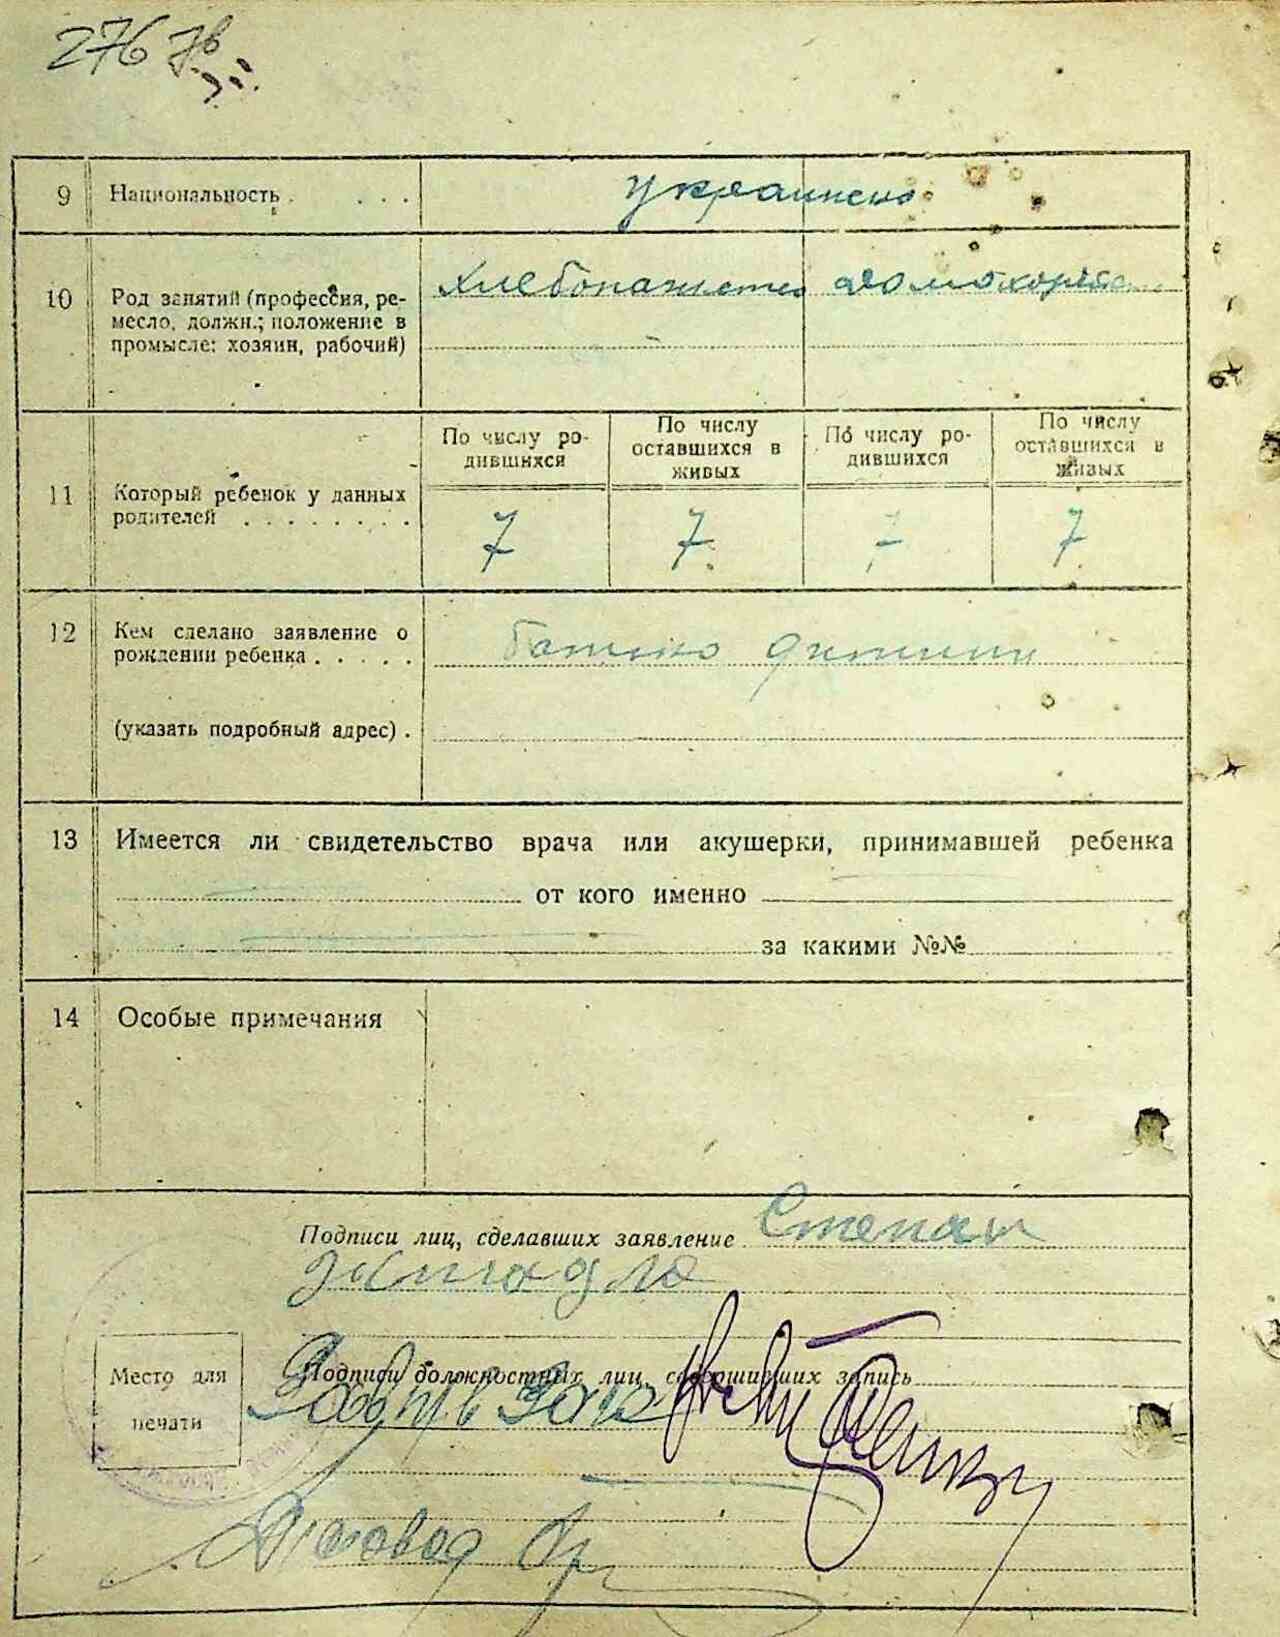 276
9 Национальность . . . .
украинско
10 Род занятий (профессия, ре-
месло, должн.; положение в
промысле: хозяин, рабочий)
11 Который ребенок у данных
родителей . . . . . . . .
По числу ро-
дившихся
По числу
оставшихся в
живых
По числу ро-
дившихся
По числу
оставшихся в
живых
7 7 7 7
12 Кем сделано заявление о
рождении ребенка . . . . .
батько дитини
(указать подробный адрес) .
13 Имеется ли свидетельство врача или акушерки, принимавшей ребенка
от кого именно
за какими №№
14 Особые примечания
Подписи лиц, сделавших заявление Степан
Место для
печати
Подписи должностных лиц, совершивших запись
Діловод